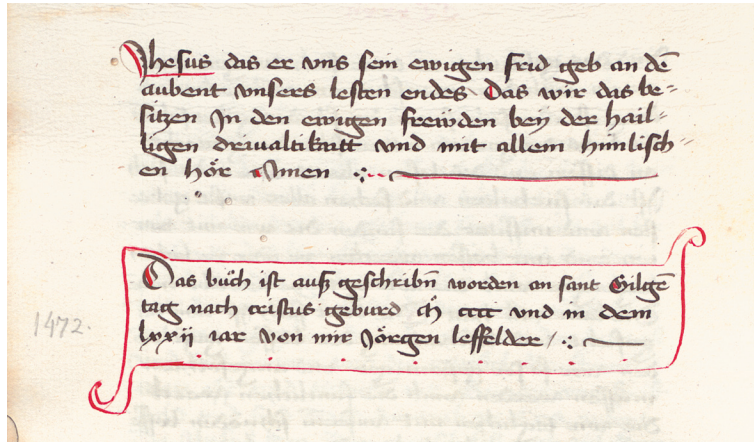 Jhesus das er vns sein ewigen frid geb an dē
aubent vnsers lesten endes Das wir das be=
sitzen Jn den ewigen frewden beÿ der hail=
ligen driualtikaitt vnd mit allem himlisch=
en hör Amen
Das bůch ist auß geschribn̄ worden an sant Gilgē
tag nach cristus geburd cccc vnd in dem
lxxii iar von mir Jörgen leffelder
1472.